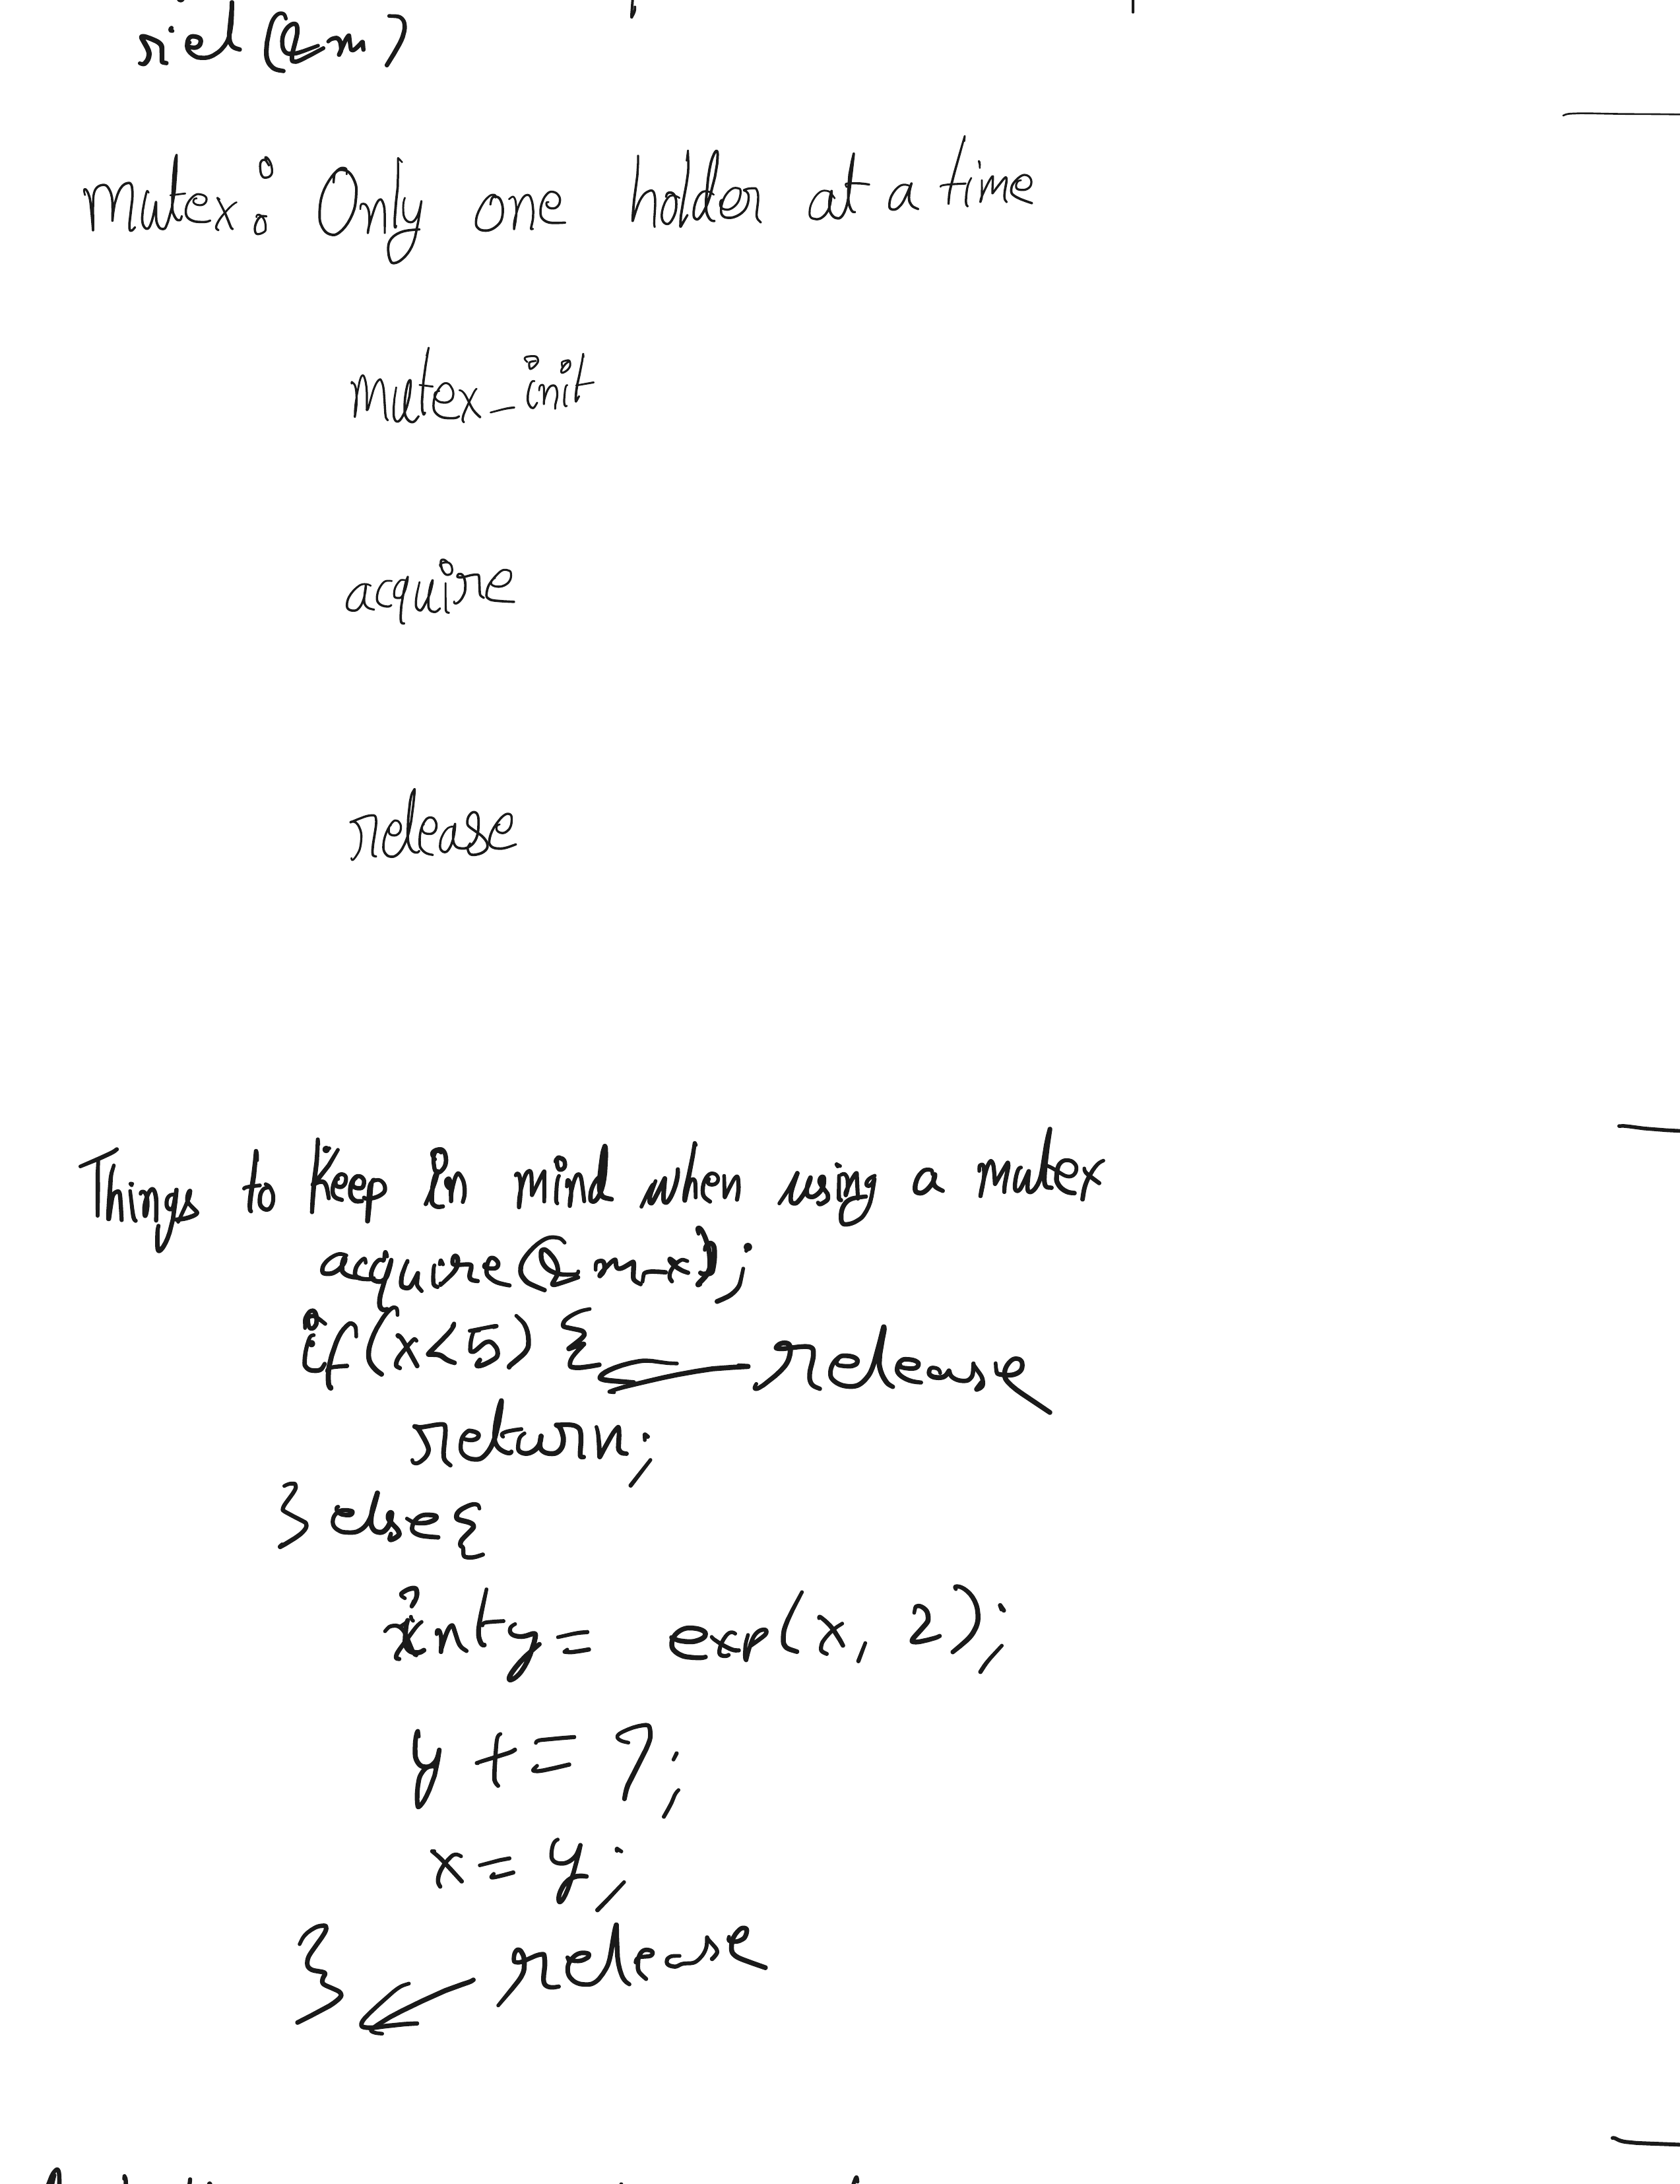 rel(&m)
Mutex: Only one holder at a time
mutex_init
acquire
release
Things to keep in mind when using a mutex
acquire(&mx);
if(x<5){ release
return;
} else{
int y = exp(x, 2);
y += 7;
x = y;
} release